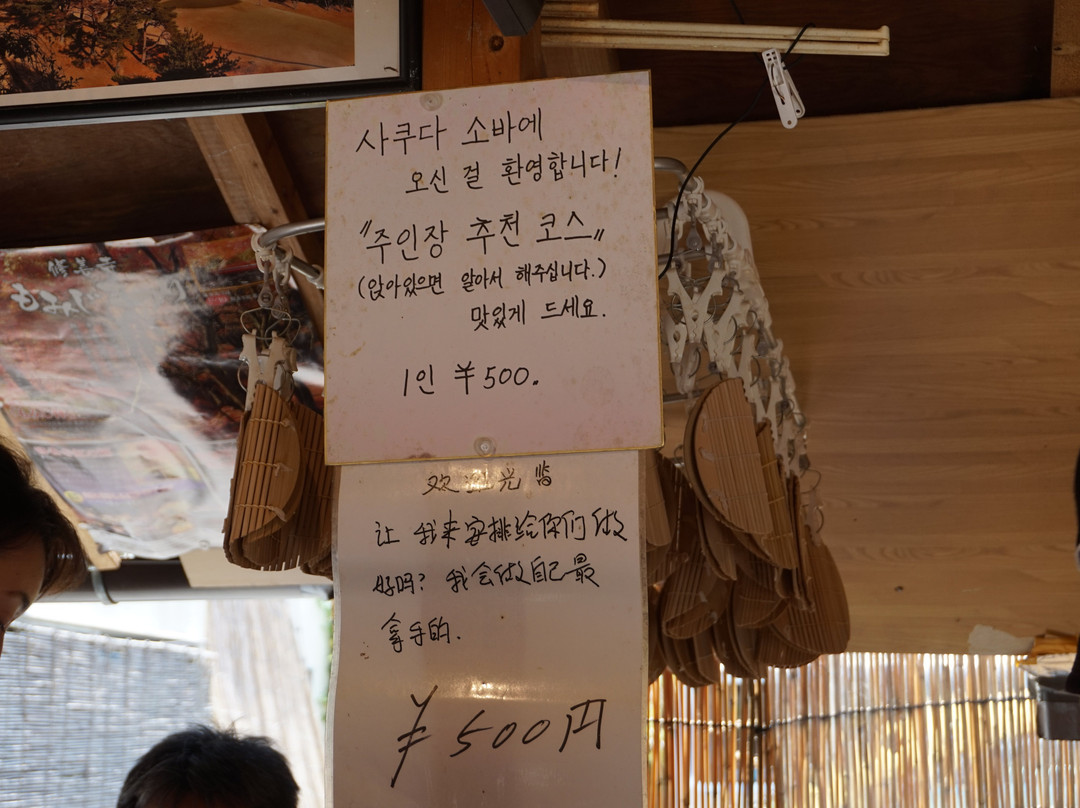 사쿠다 소바에
오신 걸 환영합니다!
"주인장 추천 코스"
(앉아있으면 알아서 해주십니다.)
맛있게 드세요.
1인 ¥500.
欢迎光临
让 我来安排给你们做
好吗? 我会做自己最
拿手的.
¥500円